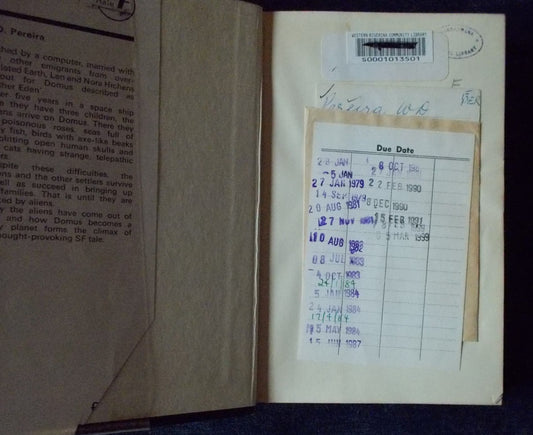 D. Pereira
ched by a computer, married with
other emigrants from over-
lated Earth, Len and Nora Hichens
out for Domus described as
ther Eden'
er five years in a space ship
they have three children, the
ans arrive on Domus. There they
poisonous roses, seas full of
y fish, birds with axe-like beaks
splitting open human skulls and
cats having strange, telepathic
ets.
spite these difficulties, the
ens and the other settlers survive
ell as succeed in bringing up
families. That is until they are
ked by aliens.
y the aliens have come out of
and how Domus becomes a
y planet forms the climax of
hought-provoking SF tale.
WESTERN RIVERINA COMMUNITY LIBRARY
S0001013501
LIBRARY
F
Pereira W D
PER
Due Date
20 JAN
8 OCT
-5 JAN
27 JAN 1979
22 FEB 1990
14 SEP 1979
20 AUG 1981
6 DEC 1990
27 NOV 1981
15 FEB 1991
10 AUG 1982
05 MAR 1999
08 JUL 1983
-4 OCT 1983
24/1/84
5 JAN 1984
24 JAN 1984
17/4/84
15 MAY 1984
15 JUN 1987